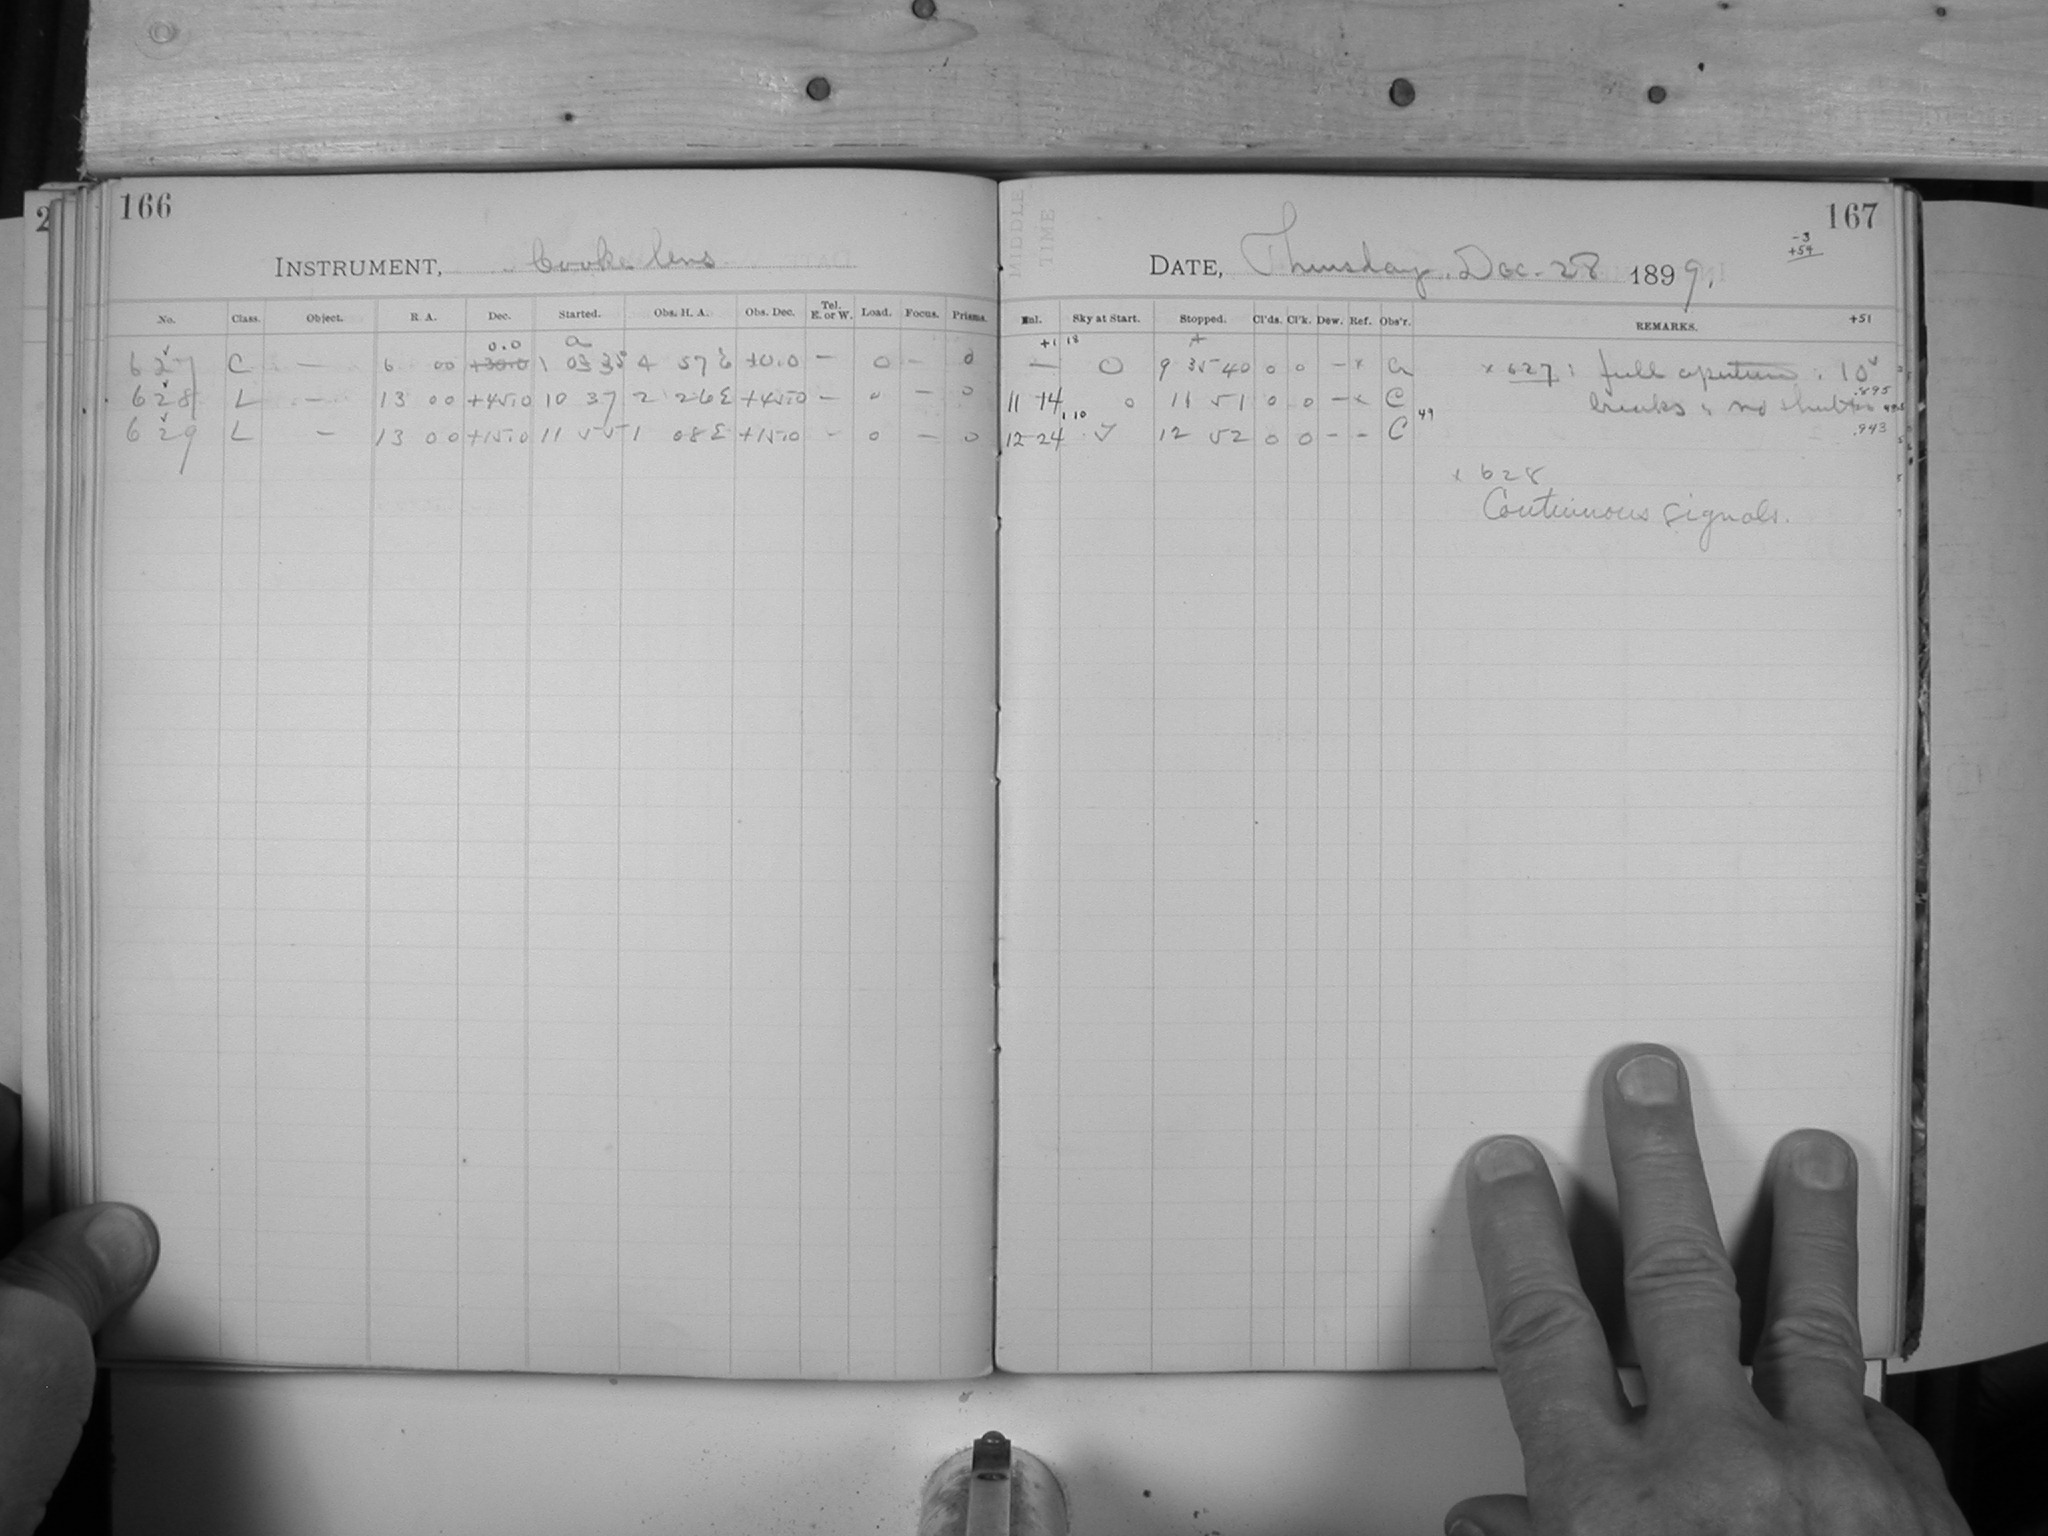 2
166
INSTRUMENT, Cooke lens
No. Class. Object. R. A. Dec. Started. Obs. H. A. Obs. Dec. Tel. E. or W. Load. Focus. Prisms.
0.0
627 C — 6 00 +30.0 1 03 35 4 57 E +0.0 — 0 — 0
628 L — 13 00 +45.0 10 37 2 26 E +45.0 — 0 — 0
629 L — 13 00 +15.0 11 55 1 08 E +15.0 - 0 — 0
MIDDLE
TIME
167
-3
+54
DATE, Thursday, Dec. 28 1899.
Enl. Sky at Start. Stopped. Cl'ds. Cl'k. Dew. Ref. Obs'r. REMARKS.
+51
+1 18
— O 9 35 40 0 0 — x
x 627: full aperture: 10
.895
11 14 0 11 51 0 0 — x C
breaks; no shutter
1 10
49
12 24 12 52 0 0 - - C
.943
x 628
Continuous signals.